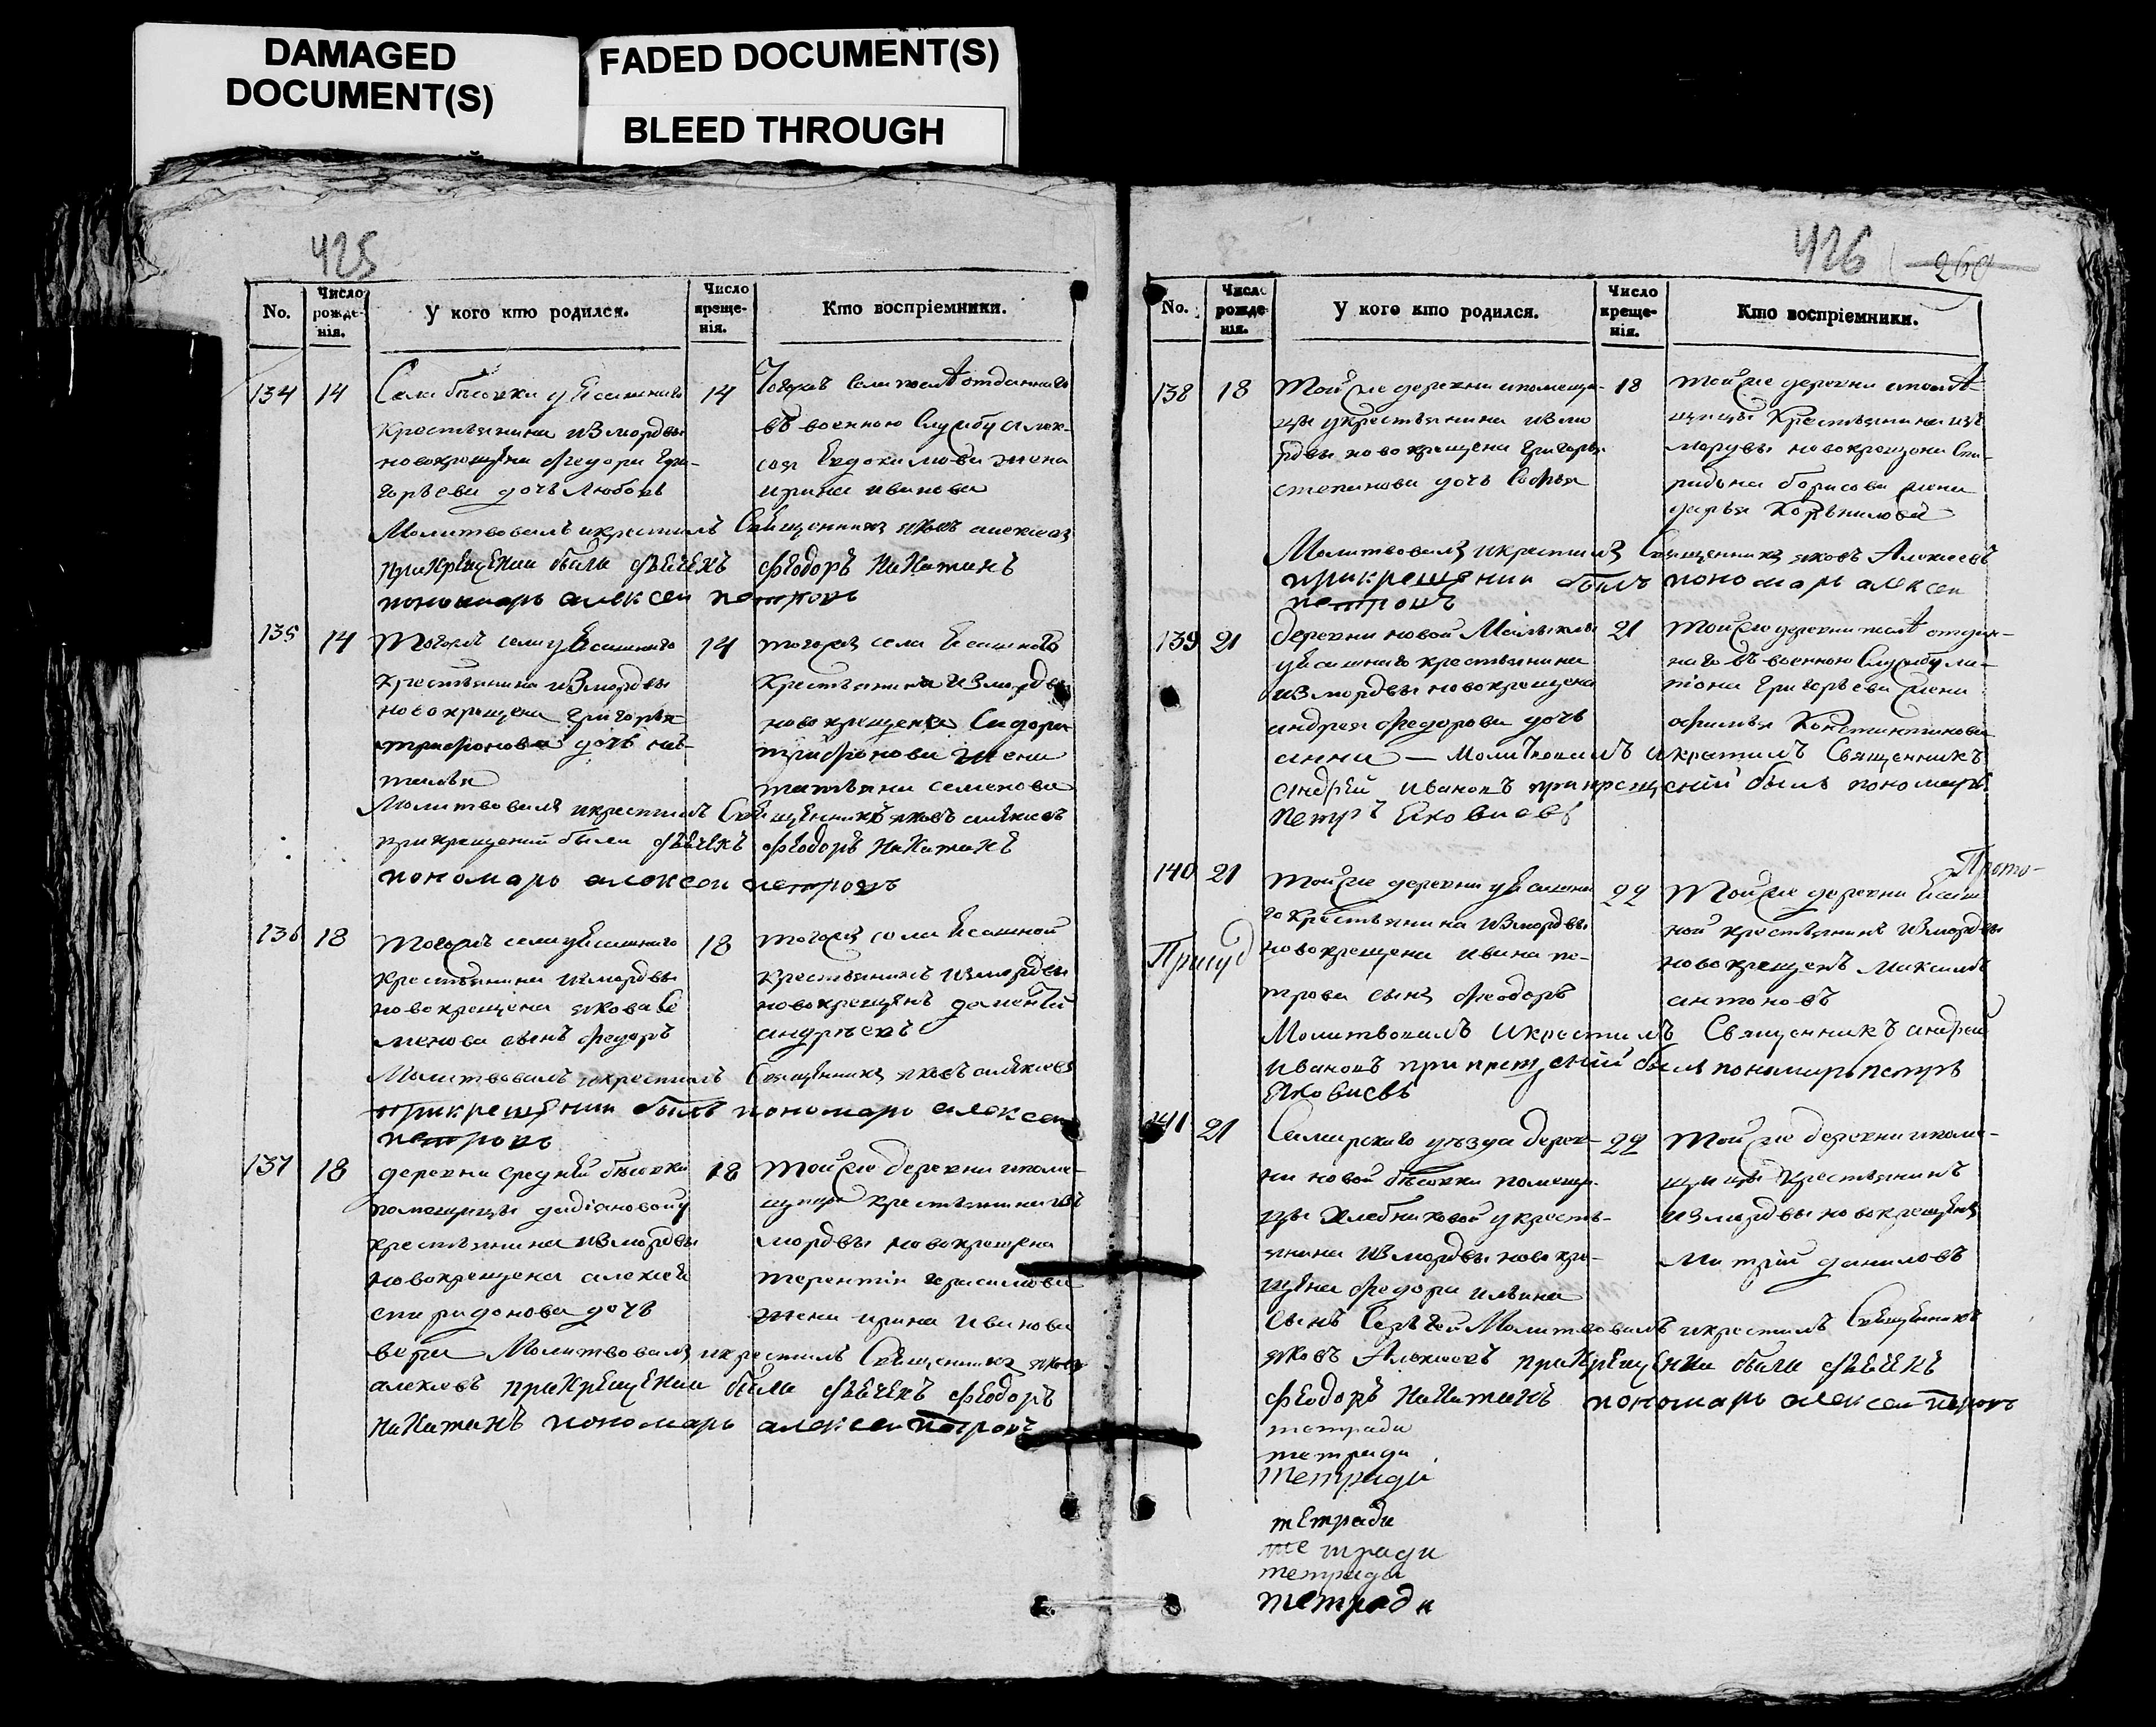 DAMAGED
DOCUMENT(S)
FADED DOCUMENT(S)
BLEED THROUGH
425
No.
Число рожденія.
У кого кто родился.
Число крещенія.
Кто воспріемники.
134
14
Села бѣсовки у Ясашнаго
крестьянина из мордвы
новокрещена Федора Гри-
горьева дочь Любовь
14
Тогожъ села жена отданнаго
въ военною Службу алек-
сея Евдокимова жена
ирина иванова
Молитвовалъ и крестилъ Священникъ яковъ алексеевъ
при крещении были дьячекъ Феодоръ Никитинъ
пономарь алексеи петровъ
135
14
Тогожъ села у Ясашнаго
крестьянина из мордвы
новокрещена григорья
трифонова дочь на-
талья
14
тогожъ села Ясашнаго
крестьянина из мордвы
новокрещена Сидора
трифонова жена
татьяна семенова
Молитвовалъ и крестилъ Священникъ яковъ алексеевъ
при крещении были дьячекъ Феодоръ Никитинъ
пономарь алексеи петровъ
136
18
Тогожъ села у Ясашнаго
крестьянина из мордвы
новокрещена якова Се
менова сынъ федоръ
18
тогожъ села Ясашной
крестьянинъ из мордвы
новокрещенъ дементий
андреевъ
Молитвовалъ и крестилъ Священникъ яковъ алексеевъ
при крещении былъ пономарь алексеи
петровъ
137
18
деревни средней бѣсовки
помещицы дадiановой у
крестьянина из мордвы
новокрещена алексея
спиридонова дочь
18
той же деревни и поме-
щицы крестьянина изъ
мордвы новокрещена
терентiя герасимова
жена ирина иванова
вера Молитвовалъ и крестилъ Священникъ яковъ
алексеевъ при крещении были дьячекъ Феодоръ
Никитинъ пономарь алексеи петровъ
426
260
No.
Число рожденія.
У кого кто родился.
Число крещенія.
Кто воспріемники.
138
18
той же деревни и помещи-
цы у крестьянина из мо
рдвы новокрещена Григорья
степанова дочь Софья
18
той же деревни и поме
щицы крестьянина изъ
мордвы новокрещена Спи-
ридона борисова жена
дарья Корнилова
Молитвовалъ и крестилъ Священникъ яковъ Алексеевъ
при крещении былъ пономарь алексеи
петровъ
139
21
деревни новой Малыклы
у Ясашнаго крестьянина
из мордвы новокрещена
андрея федорова дочь
21
той же деревни жена отдан-
наго въ военною Службу
григорьева жена
Константинова
анна — Молитвовалъ и крестилъ Священникъ
андрей ивановъ при крещении былъ пономарь
петръ Яковлевъ
140
21
той же деревни у Ясашна
го крестьянина из мордвы
новокрещена ивана пе-
трова сынъ феодоръ
22
Прото-
Той же деревни Ясаш
ной крестьянинъ из мордвы
новокрещенъ Максимъ
антоновъ
Молитвовалъ и крестилъ Священникъ андрей
ивановъ при крещении былъ пономарь петръ
Яковлевъ
141
21
Самарскаго уѣзда дерев-
ни новой бѣсовки помещи-
цы Хлебниковой у кресть-
янина из мордвы новокре-
щена федора ильина
22
той же деревни и поме-
щицы крестьянинъ
из мордвы новокрещенъ
Матвiй даниловъ
сынъ Сергей Молитвовалъ и крестилъ Священникъ
яковъ Алексеевъ при крещении были дьячекъ
Феодоръ Никитинъ пономарь алексеи петровъ
тетради
тетради
тетради
тетради
тетради
тетради
тетради